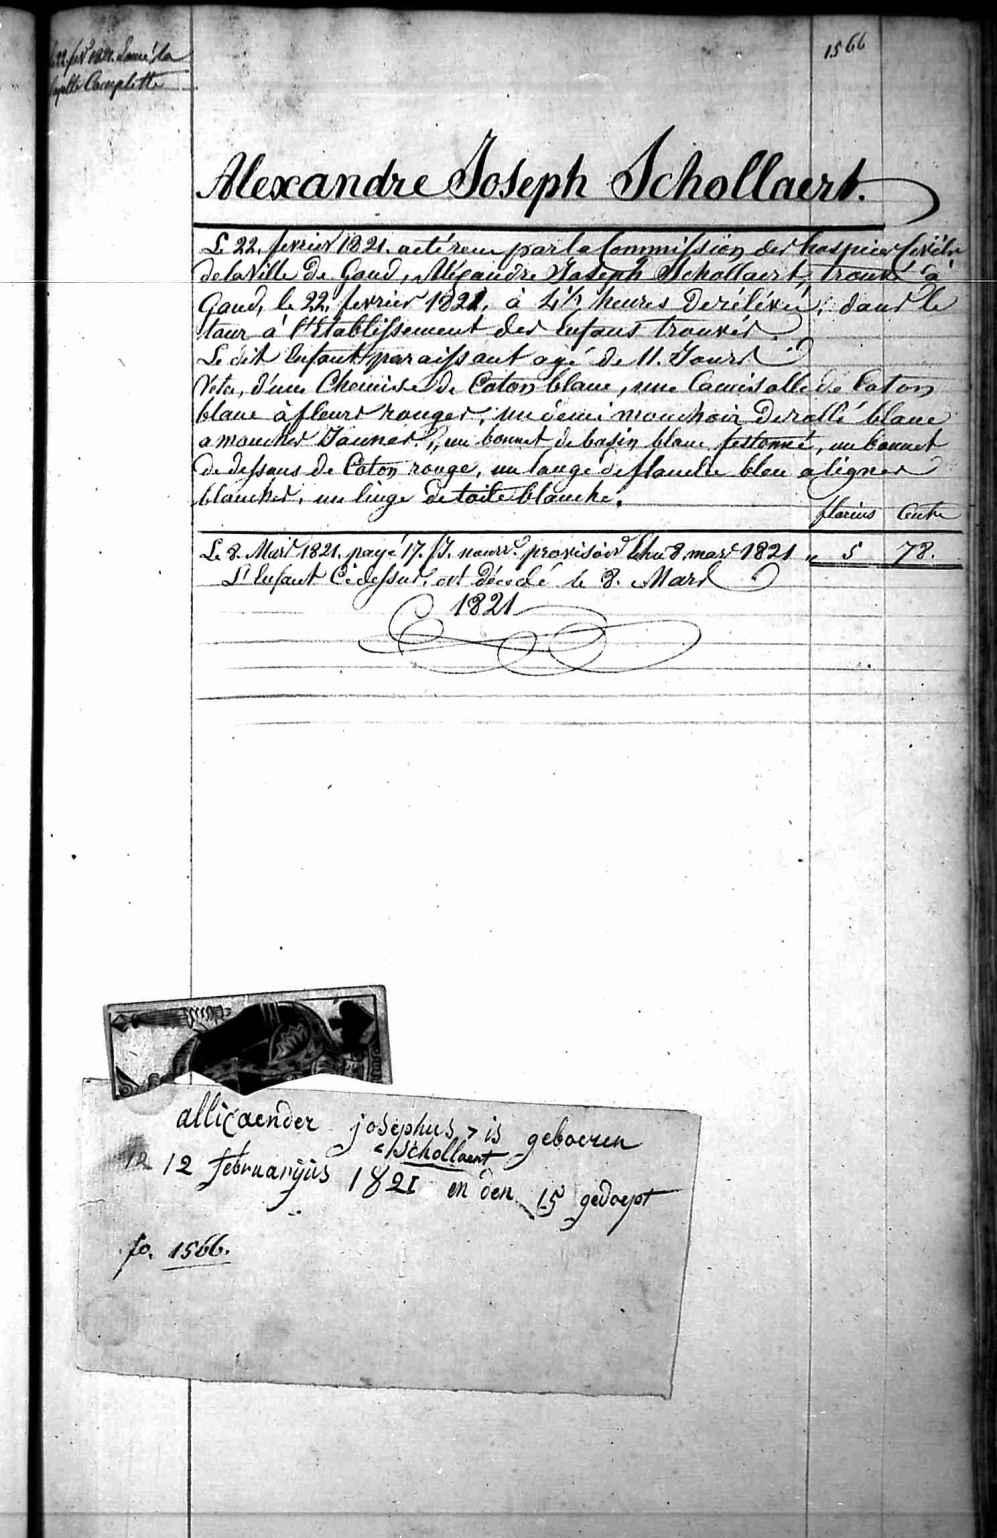 22. fev.r 1821. Donné la
layette Complette
1566
Alexandre Joseph Schollaert.
Le 22. fevrier 1821. acté reçu par la Commission des hospices Civils
de la Ville de Gand, Alexandre Joseph Schollaert, trouvé à
Gand, le 22. fevrier 1821, à 4½ heures de rélévée, dans le
tour à l'Etablissement des Enfans trouvés.
Le dit Enfant paraissant agé de 11. Jours
Vetu, d'une Chemise de Coton blanc, une Camisolle de Coton
blanc à fleurs rouges, un demi mouchoir de collé blanc
a mouches Jaunes, un bonnet de basin blanc festonné, un bonnet
de dessous de Coton rouge, un lange de flanelle bleu a lignes
blanches, un linge de toile blanche.
florins Cents
Le 8. Mars 1821. payé 17. J. nourr.e provisoire 8 mars 1821 „ 5 78.
L'Enfant Cidessus, est décédé le 8. Mars
1821
allicaender josephus > is geboeren
< Schollaert
12 12 februarijus 1821 en den 15 gedoept
fo. 1566.